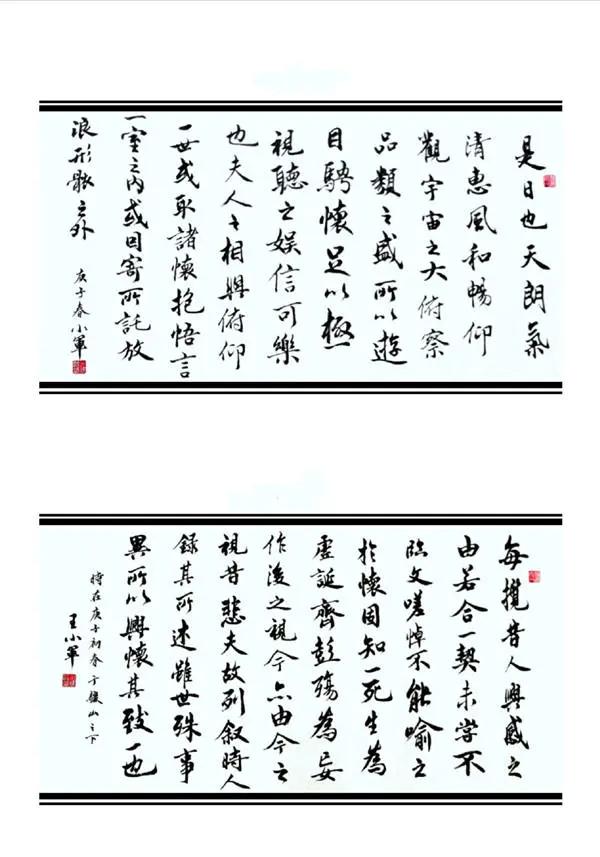 是日也天朗氣
清惠風和暢仰
觀宇宙之大俯察
品類之盛所以遊
目騁懷足以極
視聽之娛信可樂
也夫人之相與俯仰
一世或取諸懷抱悟言
一室之內或因寄所託放
浪形骸之外
庚子春小軍
每攬昔人興感之
由若合一契未嘗不
臨文嗟悼不能喻之
於懷固知一死生為
虛誕齊彭殤為妄
作後之視今亦由今之
視昔悲夫故列敘時人
錄其所述雖世殊事
異所以興懷其致一也
時在庚子初春于山之下
王小軍